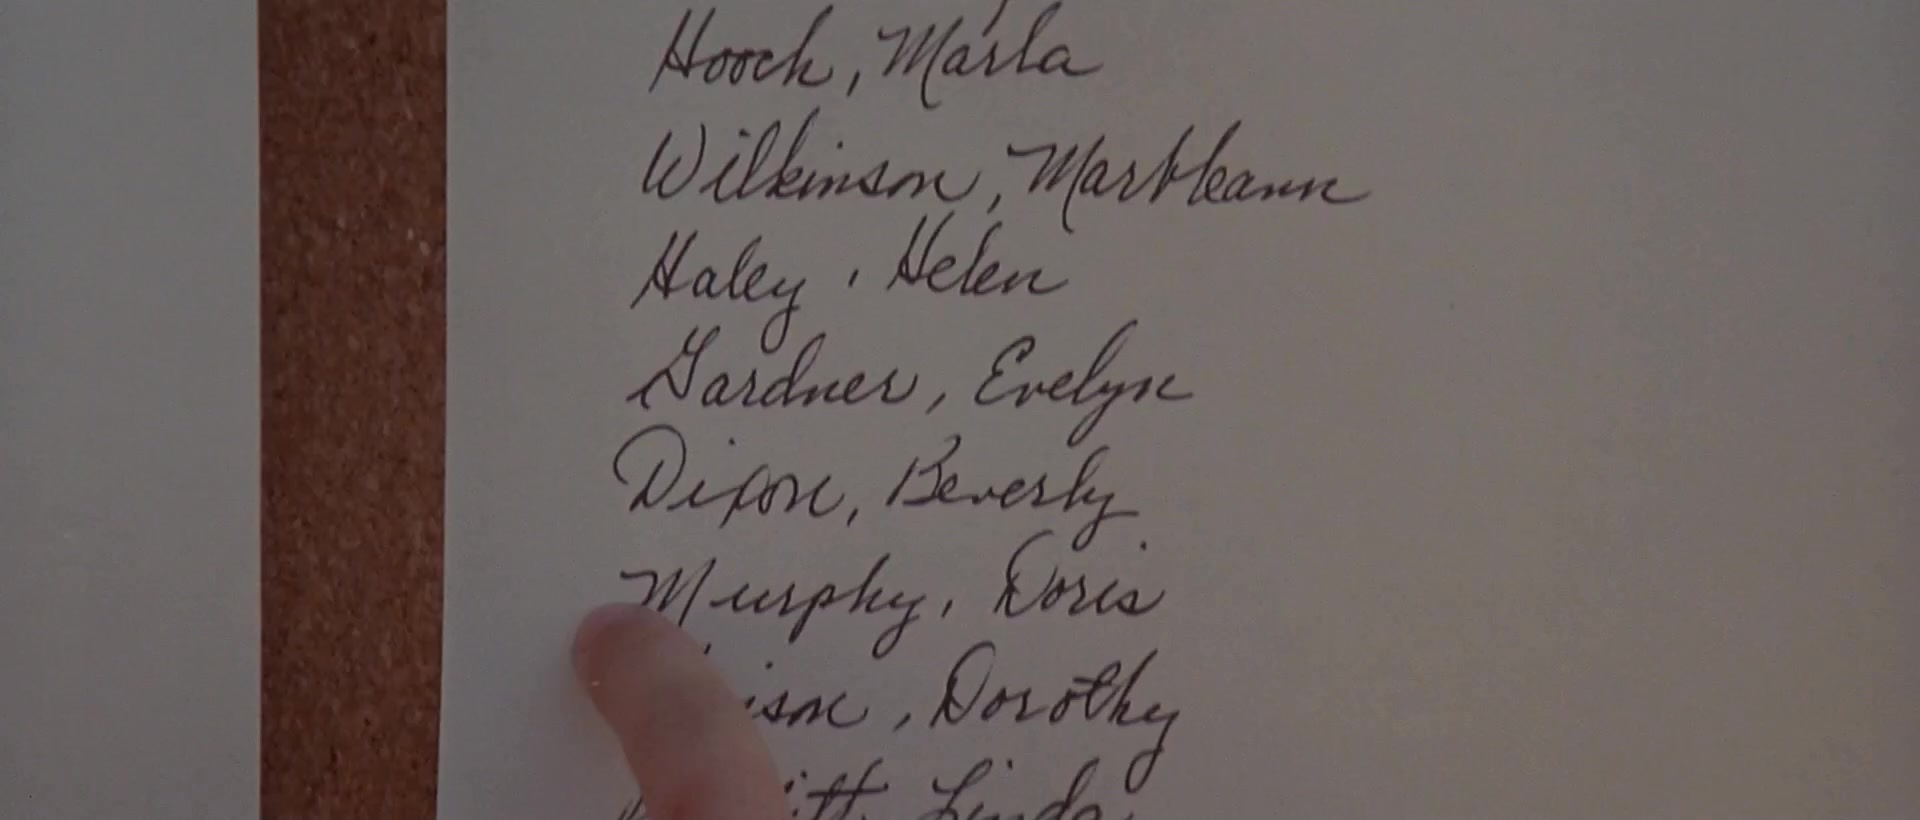 Hooch, Marla
Wilkinson, Marbleann
Haley, Helen
Gardner, Evelyn
Dixon, Beverly
Murphy, Doris
Dorothy
Linda